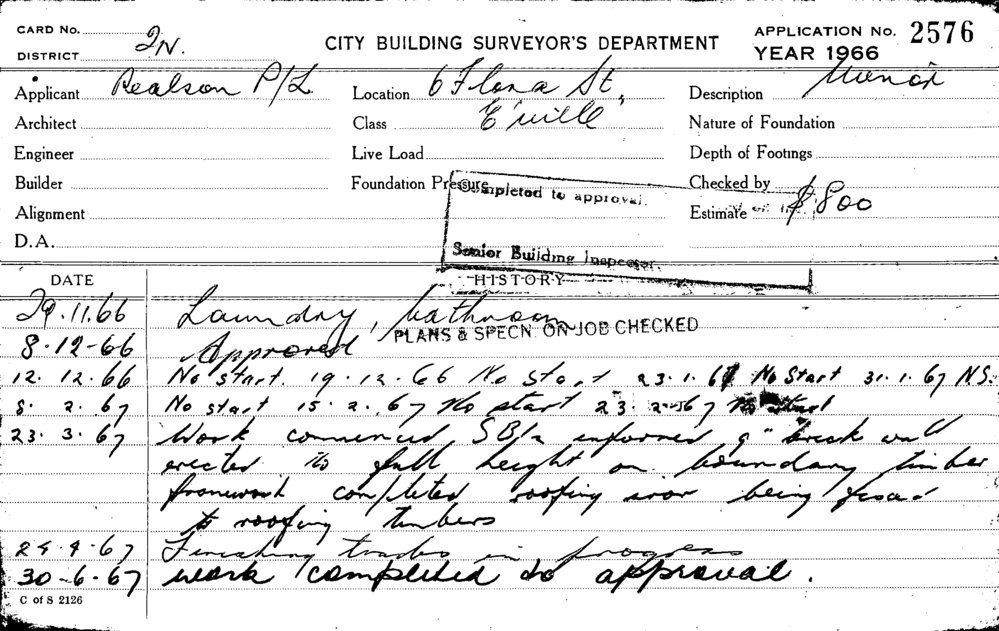 CARD No.
DISTRICT 2N.
CITY BUILDING SURVEYOR'S DEPARTMENT
APPLICATION No. 2576
YEAR 1966
Applicant Realson P/L
Location 6 Flora St,
Description Minor
Architect
Class E'ville
Nature of Foundation
Engineer
Live Load
Depth of Footings
Builder
Foundation Pressure
Checked by
Completed to approval.
Alignment
Estimate $800
D.A.
Senior Building Inspector.
DATE
HISTORY
29.11.66 Laundry, bathroom
PLANS & SPECN. ON JOB CHECKED
8-12-66 Approved
12.12.66 No start. 19.12.66 No Start 23.1.67 No Start 31.1.67 N.S.
8. 2. 67 No start 15.2.67 No start 23.2.67 No start
23.3.67 Work commenced, SB/n informed 9" brick wall
erected to full height on boundary timber
framework completed roofing iron being fixed
to roofing timbers
24.4.67 Finishing trades in progress
30-6-67 work completed to approval.
C of S 2126